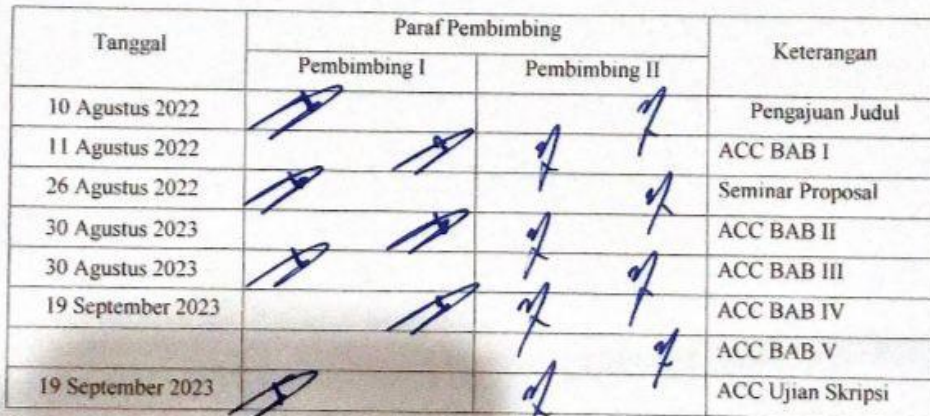 Tanggal Paraf Pembimbing Keterangan
Pembimbing I Pembimbing II
10 Agustus 2022 Pengajuan Judul
11 Agustus 2022 ACC BAB I
26 Agustus 2022 Seminar Proposal
30 Agustus 2023 ACC BAB II
30 Agustus 2023 ACC BAB III
19 September 2023 ACC BAB IV
ACC BAB V
19 September 2023 ACC Ujian Skripsi